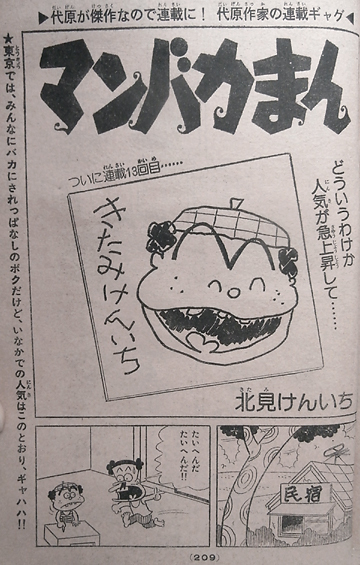 ▶代原が傑作なので連載に! 代原作家の連載ギャグ◀
マンバカまん
★東京では、みんなにバカにされっぱなしのボクだけど、いなかでの人気はこのとおり、ギャハハ!!
どういうわけか
人気が急上昇して……
ついに連載13回目……
きたみけんいち
北見けんいち
民宿
たいへんだ
たいへんだ!!
(209)